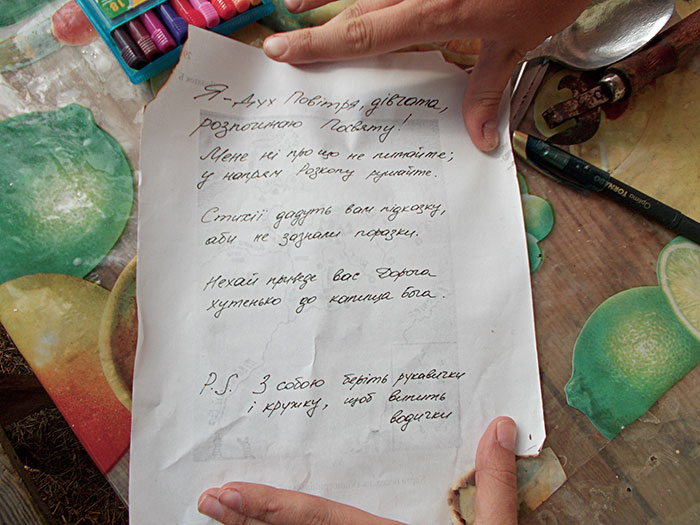 Я - Дух Повітря, дівчата,
розпочинаю Посвяту!
Мене ні про що не питайте;
у напрям Розкопу рушайте.
Стихії дадуть вам підказку,
аби не зазнали поразки.
Нехай приведе вас Дорога
хутенько до капища Бога.
P.S. З собою беріть рукавички
і кружку, щоб випить
водички
Optima TORNADO
18